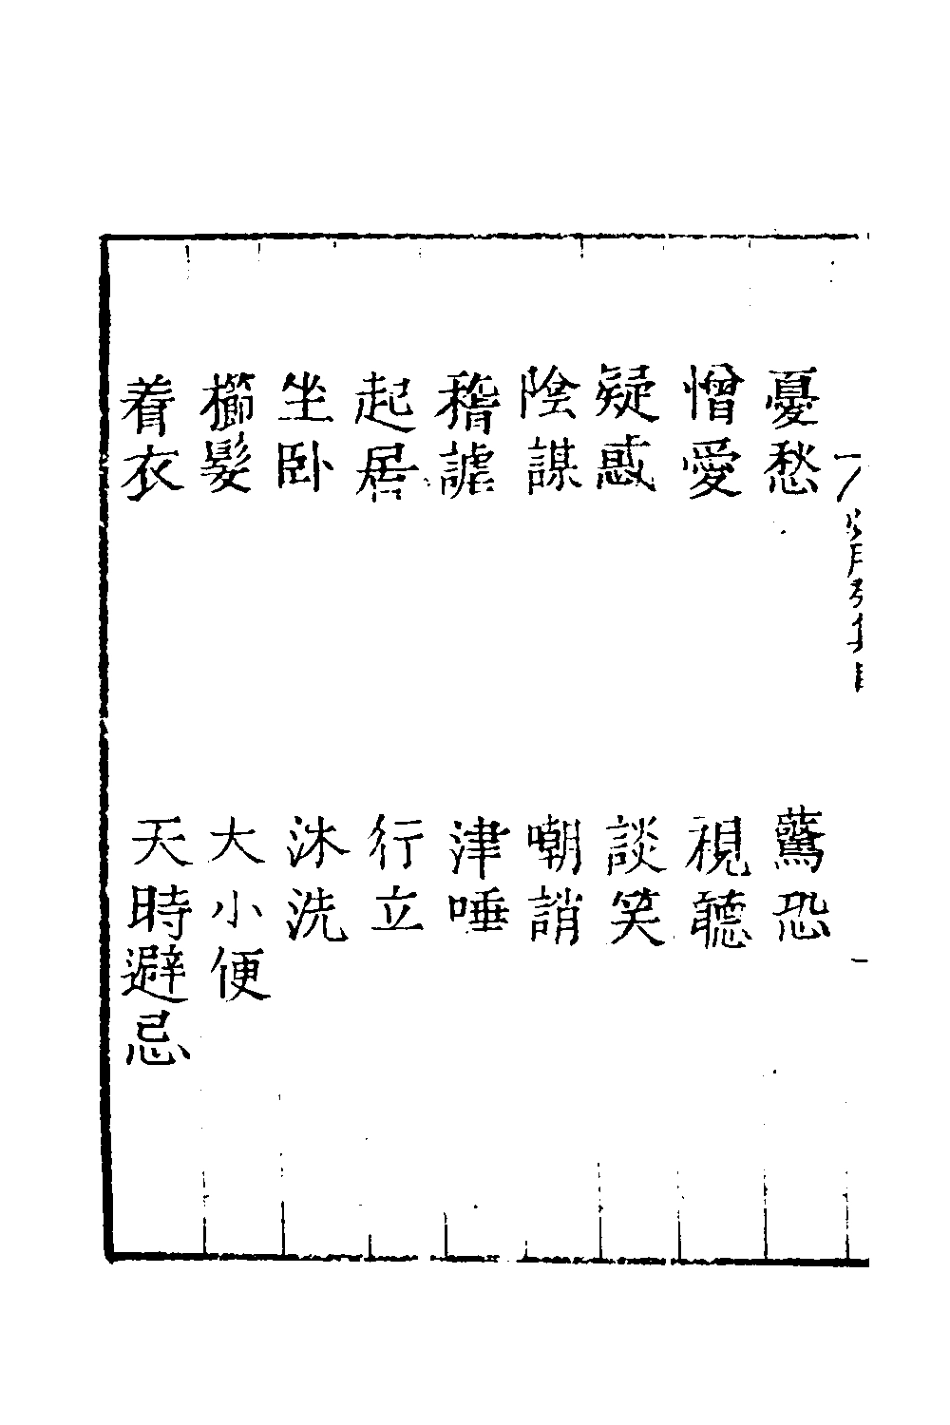 憂愁　驚恐
憎愛　視聽
疑惑　談笑
陰謀　嘲誚
稽謔　津唾
起居　行立
坐卧　沐洗
櫛髮　大小便
着衣　天時避忌